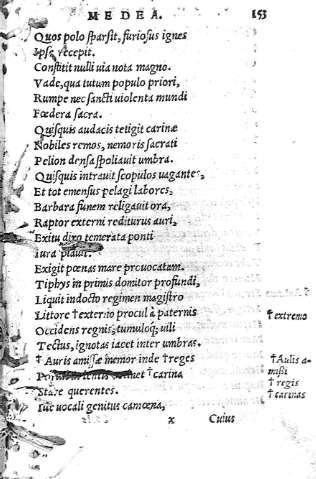 MEDEA. 153
Quos polo sparsit, furiosus ignes
Ipse recepit.
Constitit nulli uia nota magno.
Vade, qua tutum populo priori,
Rumpe nec sancti uiolenta mundi
Fœdera sacra.
Quisquis audacis tetigit carinæ
Nobiles remos, nemoris sacrati
Pelion densa spoliauit umbra.
Quisquis intrauit scopulos uagantes,
Et tot emensus pelagi labores,
Barbara funem religauit ora,
Raptor externi rediturus auri,
Exitu diro temerata ponti
Iura piauit.
Exigit pœnas mare prouocatum.
Tiphys in primis domitor profundi,
Liquit indocto regimen magistro
Littore †externo procul à paternis †extremo
Occidens regnis, tumuloq; uili
Tectus, ignotas iacet inter umbras.
†Auris amissæ memor inde †reges †Aulis a-
missi
† regis
†carina †carinas
Stare querentes.
Ille uocali genitus camœna,
x Cuius